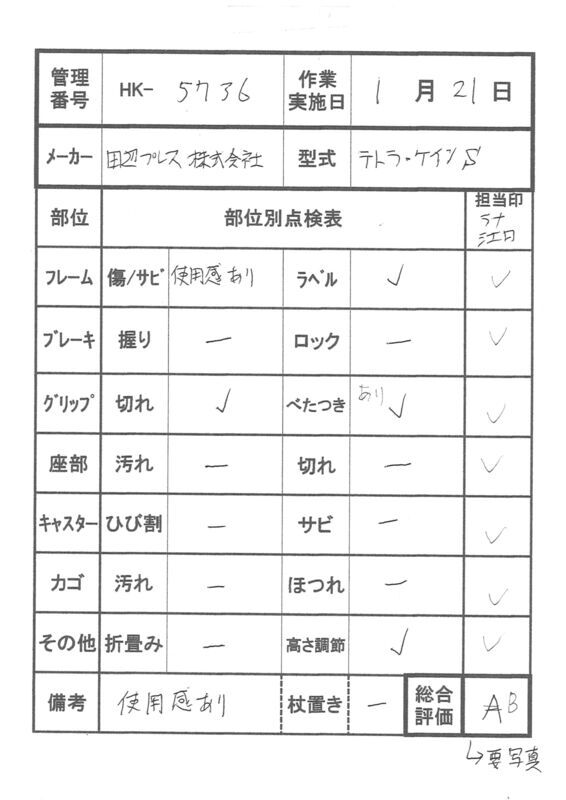 管理番号 HK- 5736 作業実施日 1月21日
メーカー 田辺プレス株式会社 型式 テトラ・ケインS
部位 部位別点検表 担当印
江口
フレーム 傷/サビ 使用感あり ラベル ✓ ✓
ブレーキ 握り ー ロック ー ✓
グリップ 切れ ✓ べたつき あり ✓ ✓
座部 汚れ ー 切れ ー ✓
キャスター ひび割 ー サビ ー ✓
カゴ 汚れ ー ほつれ ー ✓
その他 折畳み ー 高さ調節 ✓ ✓
備考 使用感あり 杖置き ー 総合評価 AB
↳要写真